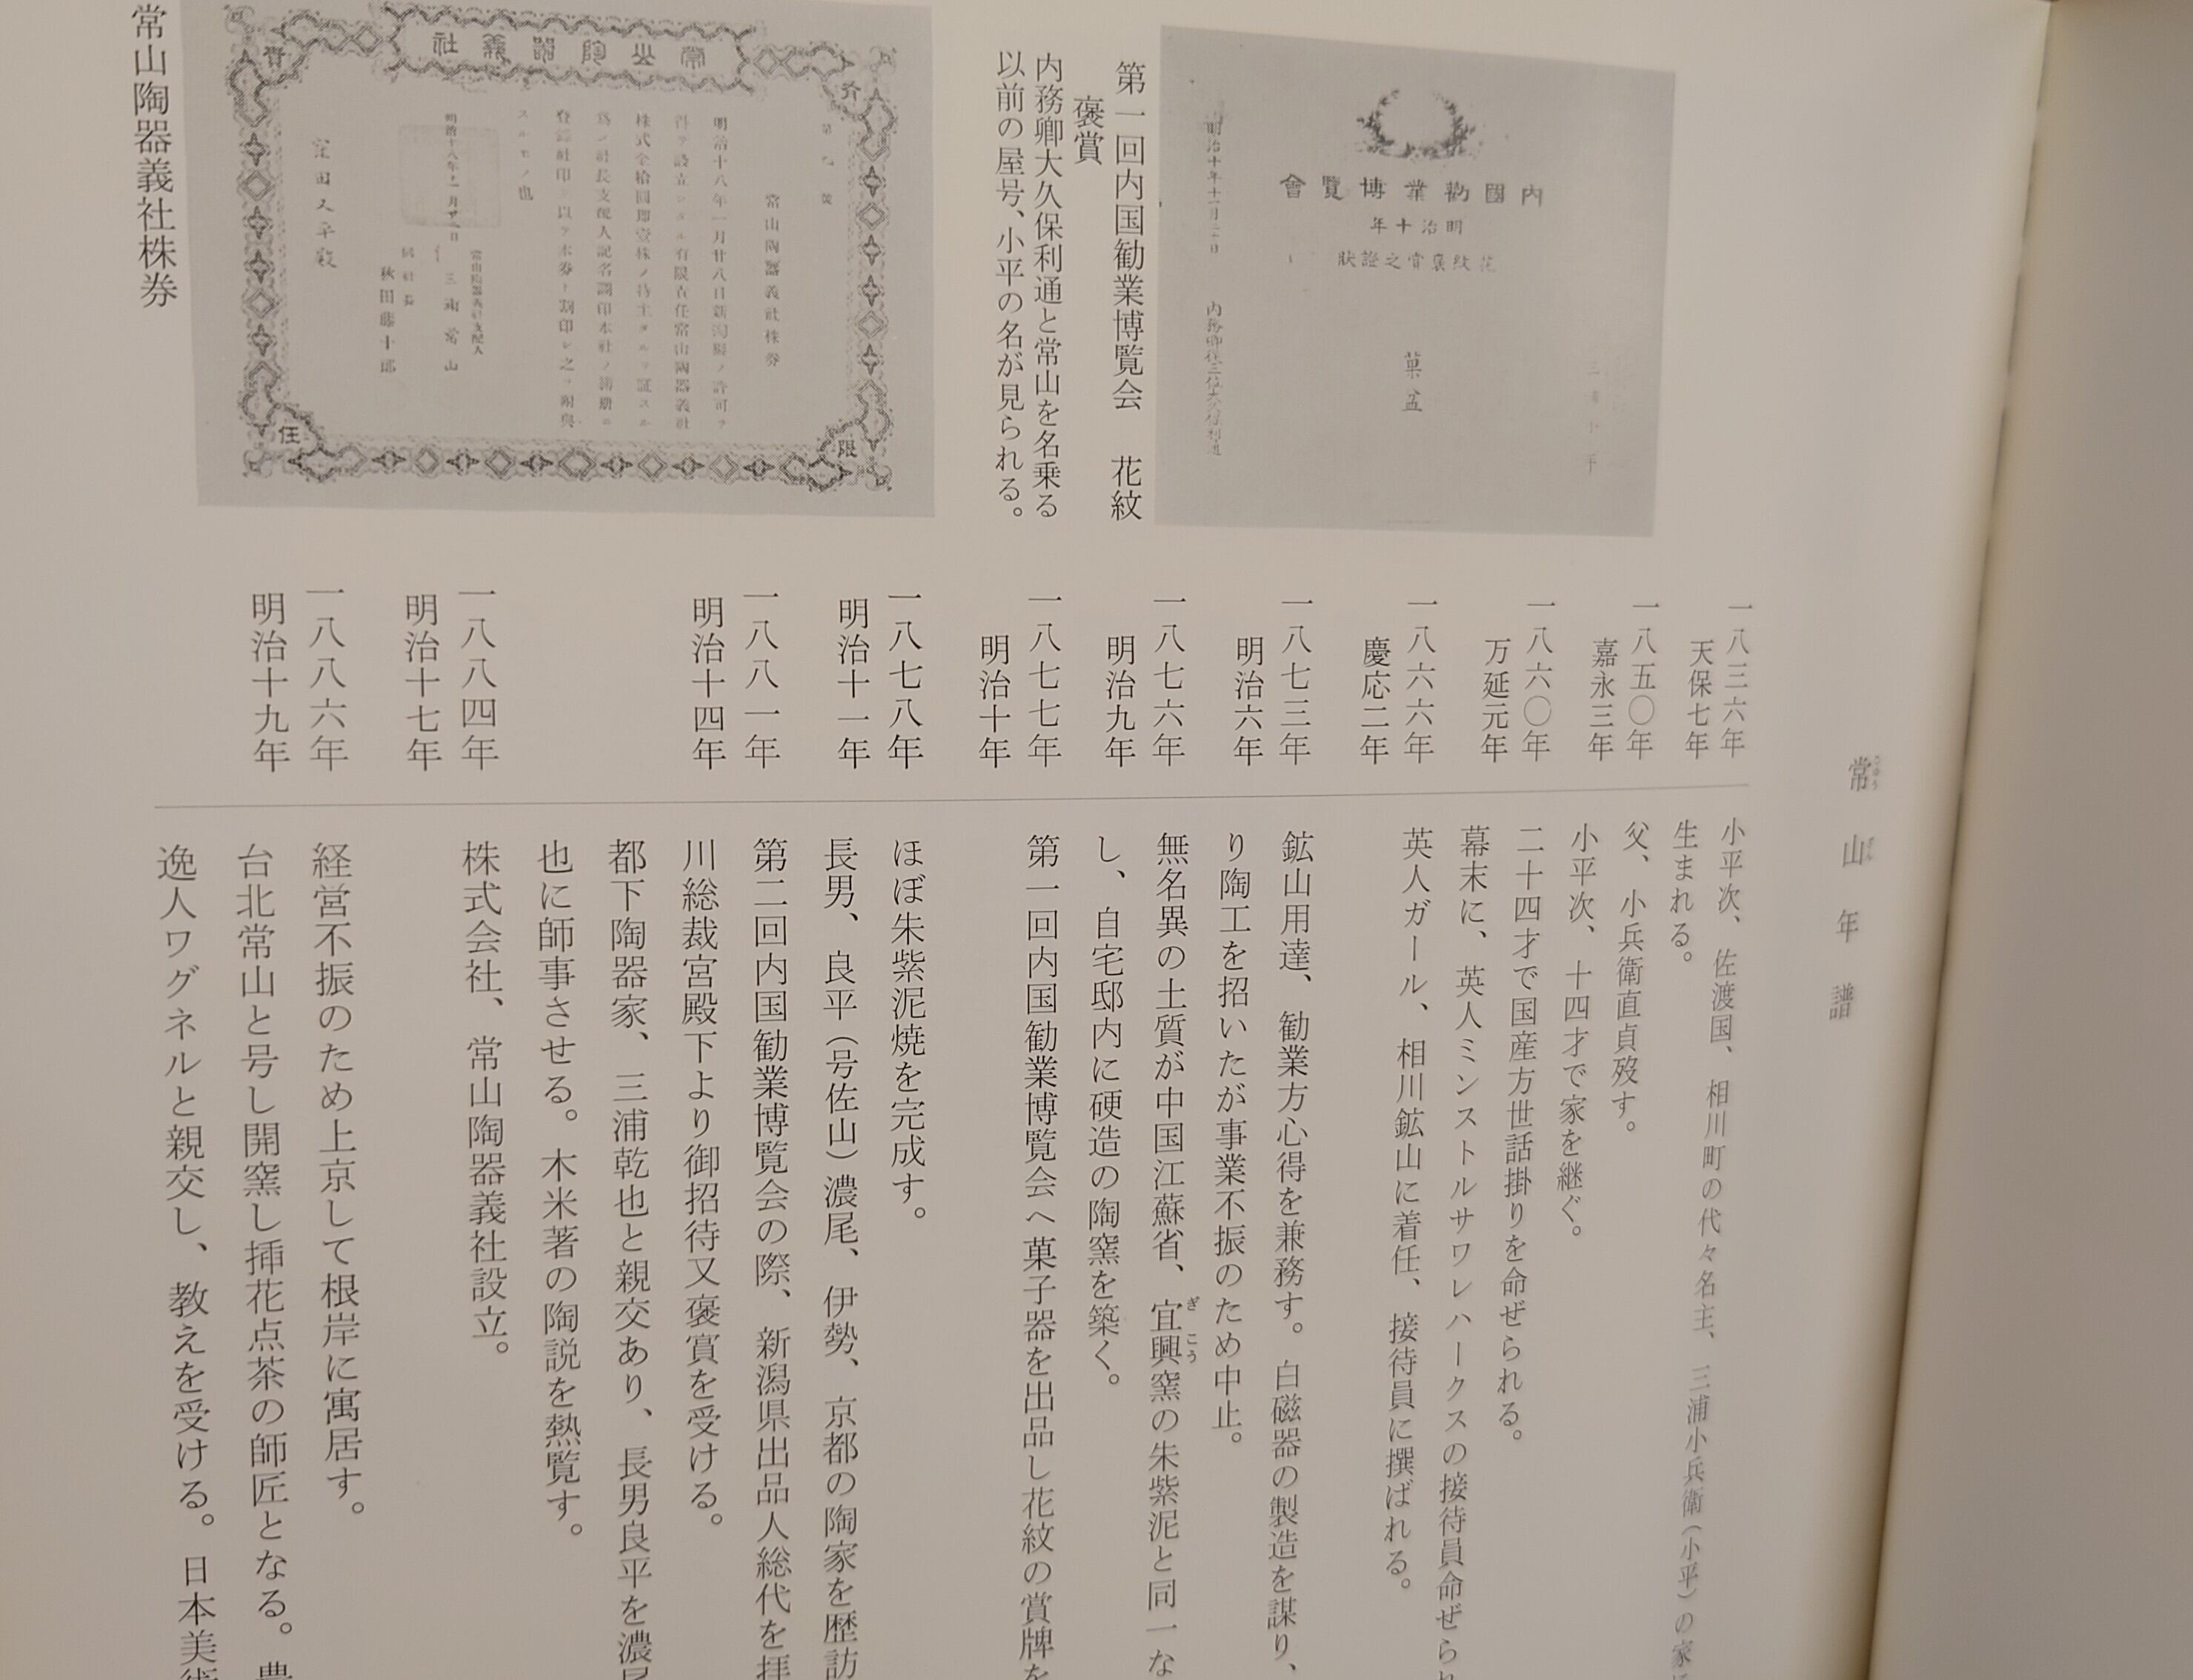 常山年譜
一八三六年
天保七年
小平次、佐渡国、相川町の代々名主、三浦小兵衛（小平）の家に
生まれる。
一八五〇年
嘉永三年
父、小兵衛直貞歿す。
小平次、十四才で家を継ぐ。
一八六〇年
万延元年
二十四才で国産方世話掛りを命ぜられる。
幕末に、英人ミンストルサワレハークスの接待員命ぜられ
一八六六年
慶応二年
英人ガール、相川鉱山に着任、接待員に撰ばれる。
一八七三年
明治六年
鉱山用達、勧業方心得を兼務す。白磁器の製造を謀り、
り陶工を招いたが事業不振のため中止。
一八七六年
明治九年
無名異の土質が中国江蘇省、宜興窯の朱紫泥と同一な
ぎこう
し、自宅邸内に硬造の陶窯を築く。
一八七七年
明治十年
第一回内国勧業博覧会へ菓子器を出品し花紋の賞牌を
一八七八年
明治十一年
ほぼ朱紫泥焼を完成す。
長男、良平（号佐山）濃尾、伊勢、京都の陶家を歴訪
一八八一年
明治十四年
第二回内国勧業博覧会の際、新潟県出品人総代を拝
川総裁宮殿下より御招待又褒賞を受ける。
都下陶器家、三浦乾也と親交あり、長男良平を濃尾
也に師事させる。木米著の陶説を熱覧す。
一八八四年
明治十七年
株式会社、常山陶器義社設立。
一八八六年
明治十九年
経営不振のため上京して根岸に寓居す。
台北常山と号し開窯し挿花点茶の師匠となる。農
逸人ワグネルと親交し、教えを受ける。日本美術
內國勸業博覽會
明治十年
花紋褒賞之證狀
菓盆
明治十年十一月二十日
第一回内国勧業博覧会　花紋
褒賞
内務卿大久保利通と常山を名乗る
以前の屋号、小平の名が見られる。
常山陶器義社株券
明治十八年一月廿八日新潟縣ノ許可ヲ
スルモノ也
三浦常山
秋田藤十郎
限
任
常山陶器義社株券